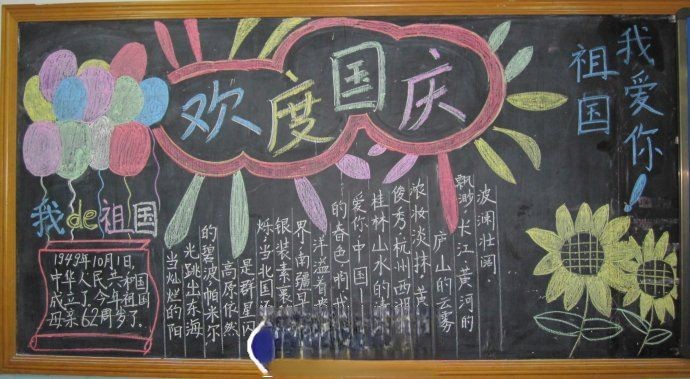 欢度国庆
祖国
我爱你!
我de祖国
1949年10月1日,
中华人民共和国
成立了,今年祖国
母亲62周岁了。
当灿烂的阳
光跳出东海
的碧波,帕米尔
高原依然
是群星闪
烁;当北国
银装素裹
界,南疆早
洋溢着
的春色。啊
爱你,中国!
桂林山水的
俊秀,杭州西湖
浓妆淡抹,黄
庐山的云雾
飘渺,长江、黄河的
波澜壮阔,